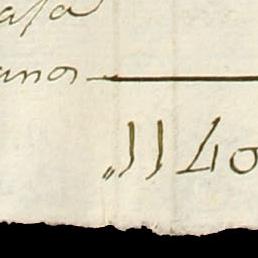 asa
anos
„1140